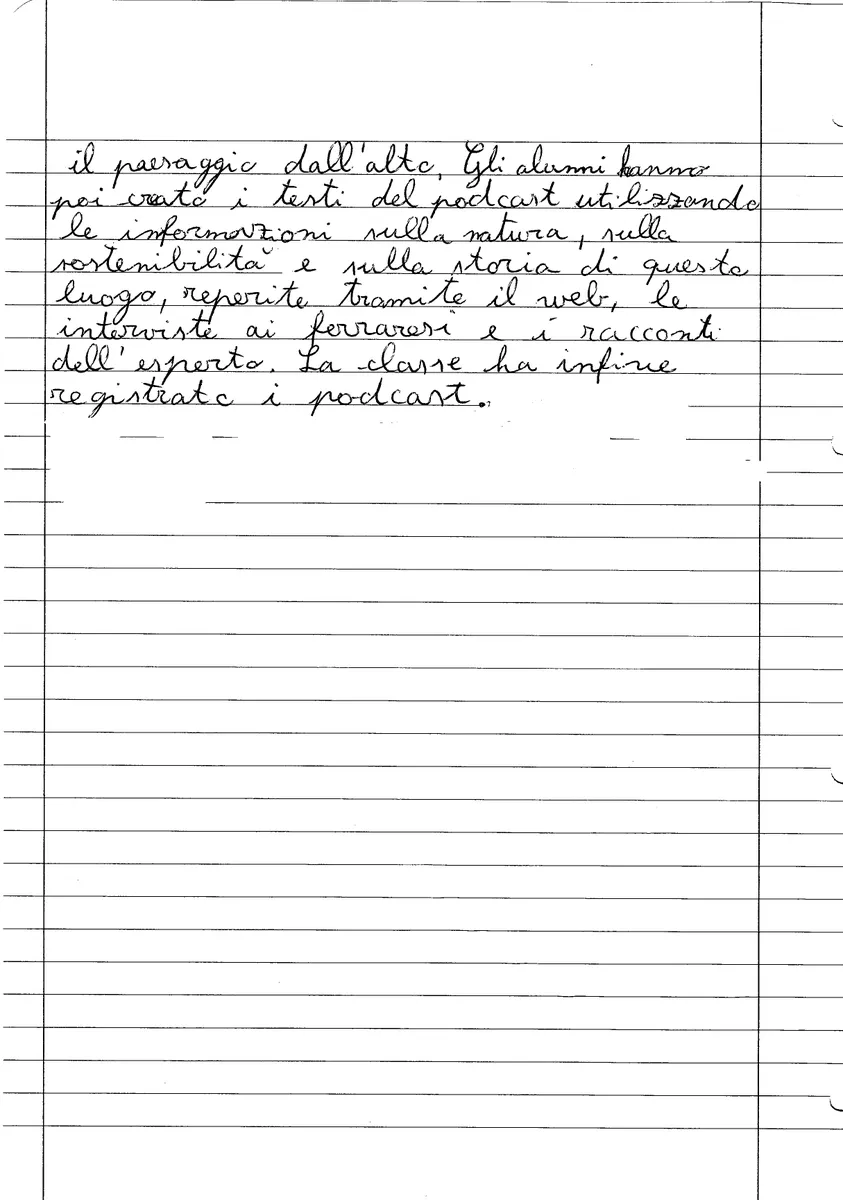 il paesaggio dall'alto. Gli alunni hanno
poi creato i testi del podcast utilizzando
le informazioni sulla natura, sulla
sostenibilità e sulla storia di questo
luogo, reperite tramite il web, le
interviste ai ferraresi e i racconti
dell'esperto. La classe ha infine
registrato i podcast.